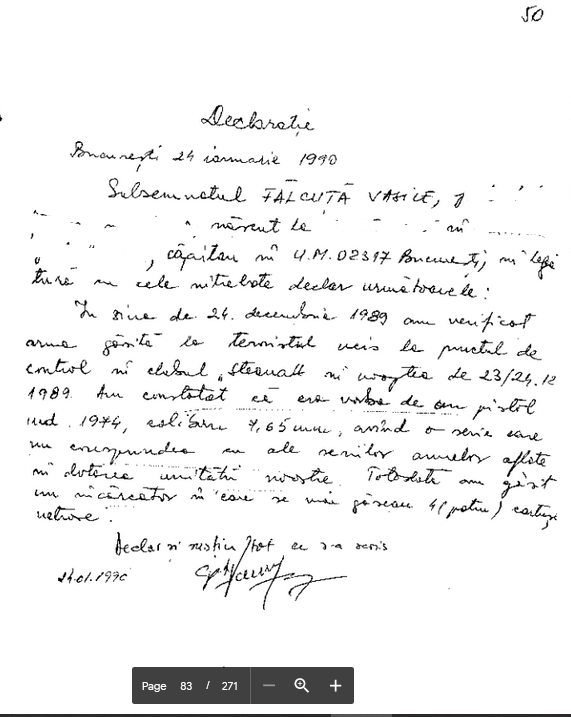 50
Declarație
București 24 ianuarie 1990
Subsemnatul FĂLCUȚĂ VASILE,
născut la în
, căpitan în U.M. 02317 București, în legă
tură cu cele întrebate declar următoarele:
În ziua de 24. decembrie 1989 am verificat
arma găsită la teroristul ucis la punctul de
control în clubul „Steaua" în noaptea de 23/24.12
1989. Am constatat că era vorba de un pistol
md. 1974, calibru 7,65 mm, având o serie care
nu corespundea cu ale seriilor armelor aflate
în dotarea unității noastre. Totodată am găsit
un încărcător în care se mai găseau 4 (patru) cartușe
netrase.
Declar și susțin tot ce s-a scris
24.01.1990
Page 83 / 271